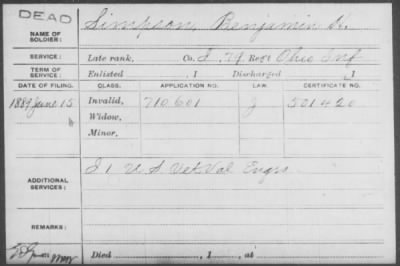 DEAD
NAME OF SOLDIER: Simpson, Benjamin H.
SERVICE: Late rank, Co. I, 79 Reg't Ohio Inf
TERM OF SERVICE: Enlisted , 1 Discharged , 1
DATE OF FILING. CLASS. APPLICATION NO. LAW. CERTIFICATE NO.
1889 June 15 Invalid, 710.601 501420
Widow,
Minor,
ADDITIONAL SERVICES: I 1 U S Vet Vol Engrs
REMARKS:
Died , 1 , at